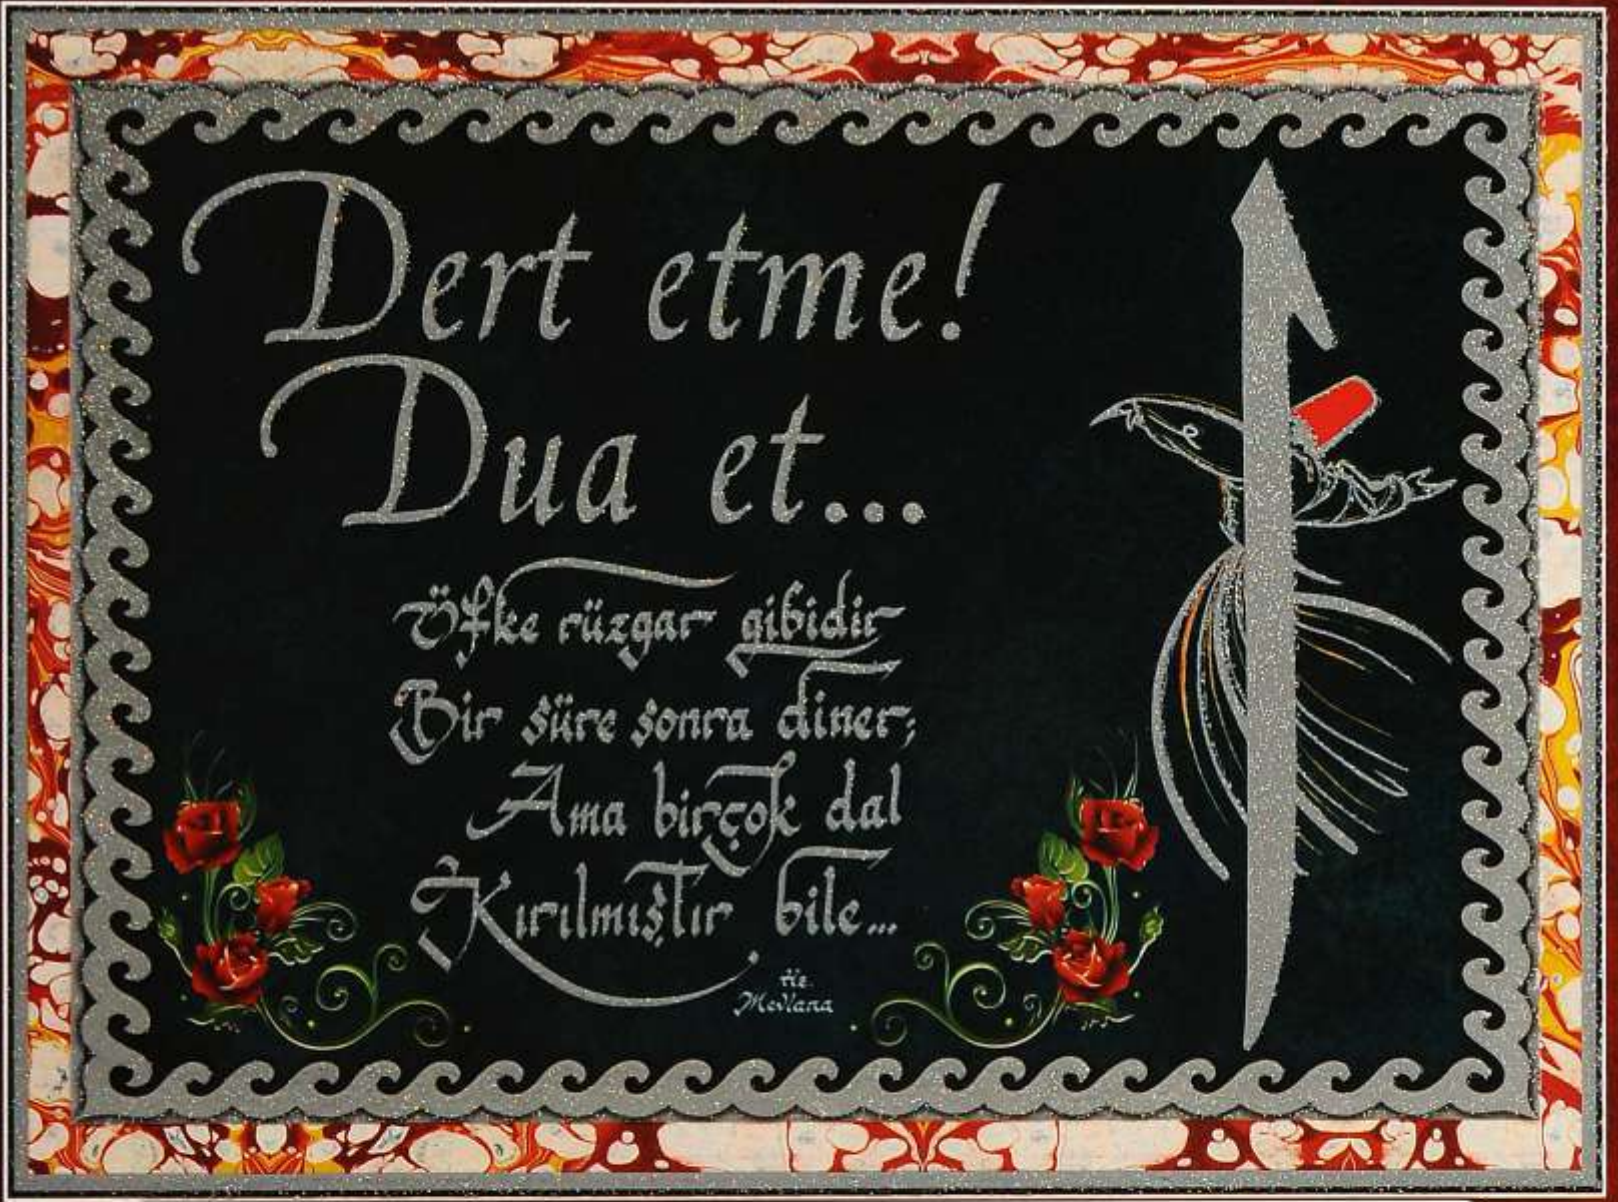 Dert etme!
Dua et...
Öfke rüzgar gibidir
Bir süre sonra diner;
Ama birçok dal
Kırılmıştır bile...
Hz.
Mevlana